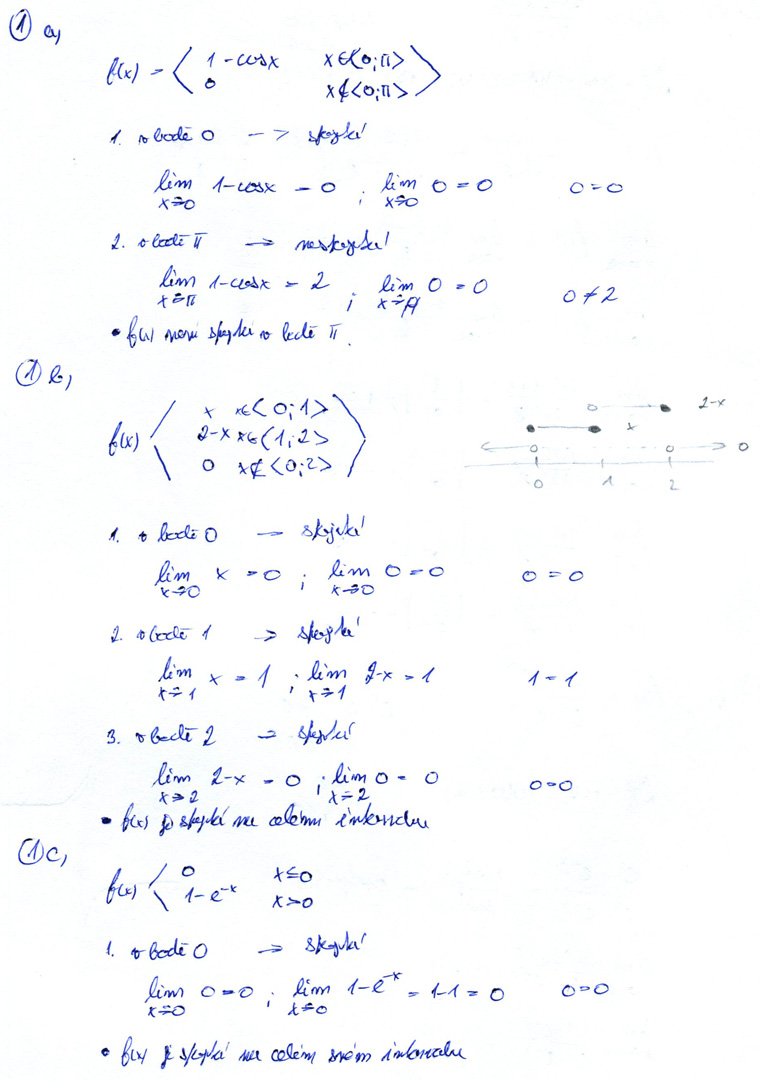 ① a,
f(x) = < 1-cosx x∈<0;π>
0 x∉<0;π> >
1. v bodě 0 -> spojitá
lim x→0 1-cosx = 0 ; lim x→0 0 = 0 0=0
2. v bodě π → nespojitá
lim x→π 1-cosx = 2 ; lim x→π 0 = 0 0≠2
• f(x) není spojitá v bodě π.
① b,
f(x) < x x∈<0;1>
2-x x∈(1;2>
0 x∉<0;2> >
2-x
x
0
0 1 2
1. v bodě 0 → spojitá
lim x→0 x = 0 ; lim x→0 0 = 0 0=0
2. v bodě 1 → spojitá
lim x→1 x = 1 ; lim x→1 2-x = 1 1=1
3. v bodě 2 → spojitá
lim x→2 2-x = 0 ; lim x→2 0 = 0 0=0
• f(x) je spojitá na celém intervalu
① c,
f(x) < 0 x≤0
1-e^-x x>0
1. v bodě 0 → spojitá
lim x→0 0=0 ; lim x→0 1-e^-x = 1-1 = 0 0=0
• f(x) je spojitá na celém svém intervalu